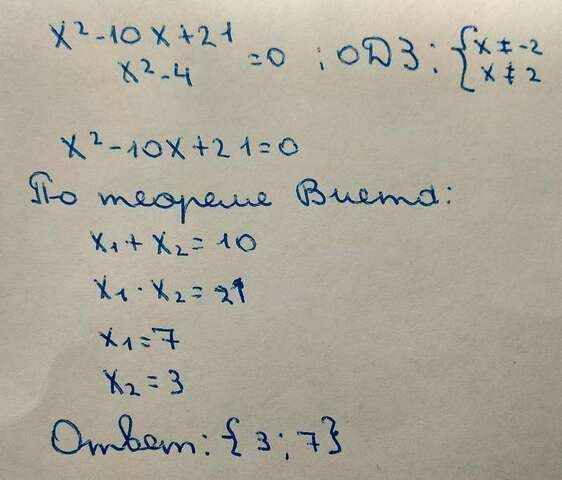 x²-10x+21
x²-4 =0 ; ОДЗ: {x≠-2
x≠2
x²-10x+21=0
По теореме Виета:
x₁+x₂=10
x₁·x₂=21
x₁=7
x₂=3
Ответ: {3;7}